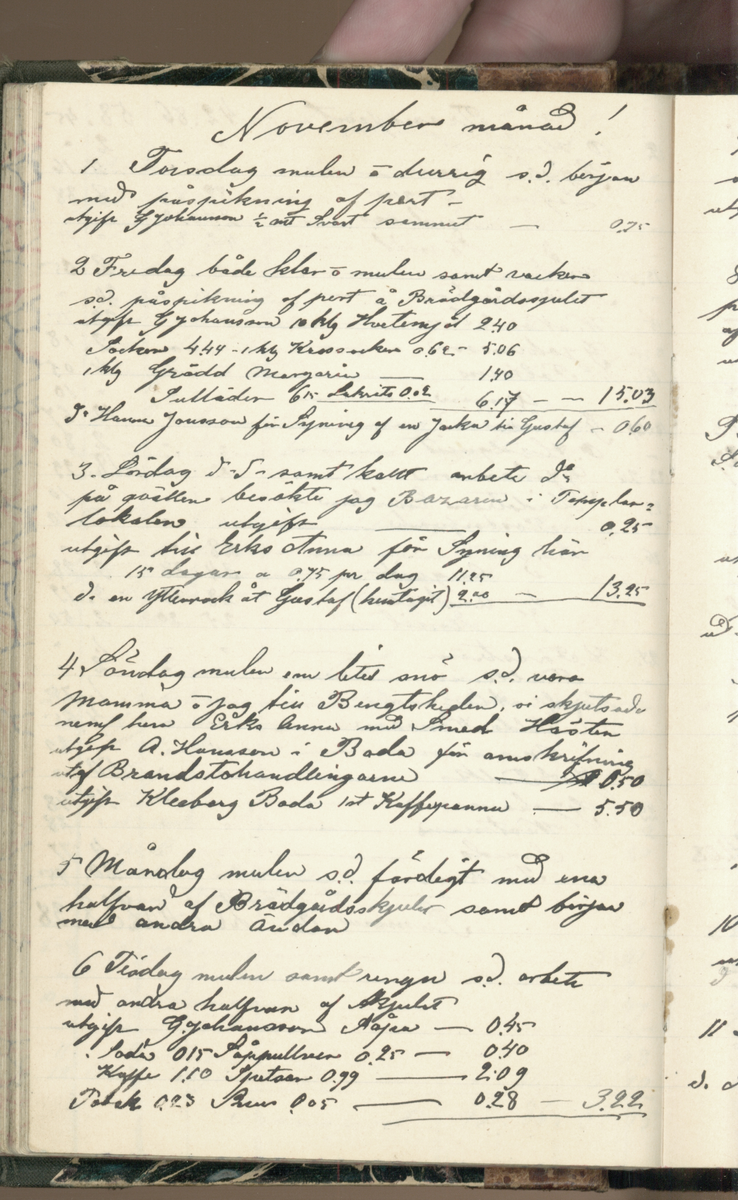 November månad !
1 Torsdag mulen o durrig s.d. börjon
med påspikning af pert -
utgift G Johansson ½ mt Svart sammet — 0.75
2 Fredag både klar o mulen samt vacker
s.d. påspikning af pert å Brädgårdsskjulet
utgift G Johansson 10 klg Hvetemjöl 2.40
Socker 4.44 - 1 klg Krossocker 0.62 - 5.06
1 klg Grädd Margarin — 1.40
615 Lakrits 0.02 6.17 — — 15.03
Do Hanna Jonsson för Syning af en Jacka till Gustaf - 0.60
3. Lördag d-d- samt kallt arbete do
på qvällen besökte jag Bazaren i Templar=
lokalen utgift — 0.25
utgift till Erks Anna för Syning här
15 dagar a 0.75 pr dag 11.25
d. en Ytterrock åt Gustaf (hemtagit) 2.00 — 13.25
4 Söndag mulen en liten snö s.d. voro
Mamma o jag till Bengtsheden, vi skjutsade
neml hem Erks Anna med Smed Hästen
utgift A. Hansson i Boda för omskrifning
utaf Brandstohandlingarne — 0.50
utgift Kleeberg Boda 1st Kaffepanna — 5.50
5 Måndag mulen s.d. färdigt med ena
halfvan af Brädgårdsskjulet samt börjas
med andra ändan
6 Tisdag mulen samt rengn s.d. arbete
med andra halfvan af skjulet
utgift G. Johansson Såpa — 0.45
Soda 015 Såppullver 0.25 — 0.40
Kaffe 1.10 Spetsar 0.99 — 2.09
Tobak 0.23 0.05 — 0.28 — 3.22